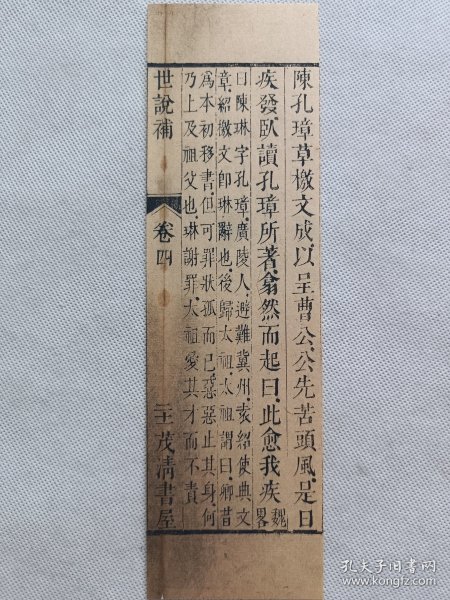 陳孔璋草檄文成以呈曹公公先苦頭風是日
疾發臥讀孔璋所著翕然而起曰此愈我疾
魏畧
曰陳琳字孔璋廣陵人避難冀州袁紹使典文
章紹檄文卽琳辭也後歸太祖太祖謂曰卿昔
爲本初移書但可罪狀孤而已惡惡止其身何
乃上及祖父也琳謝罪太祖愛其才而不責
世說補
卷四
茂清書屋
孔夫子旧书网
www.kongfz.com